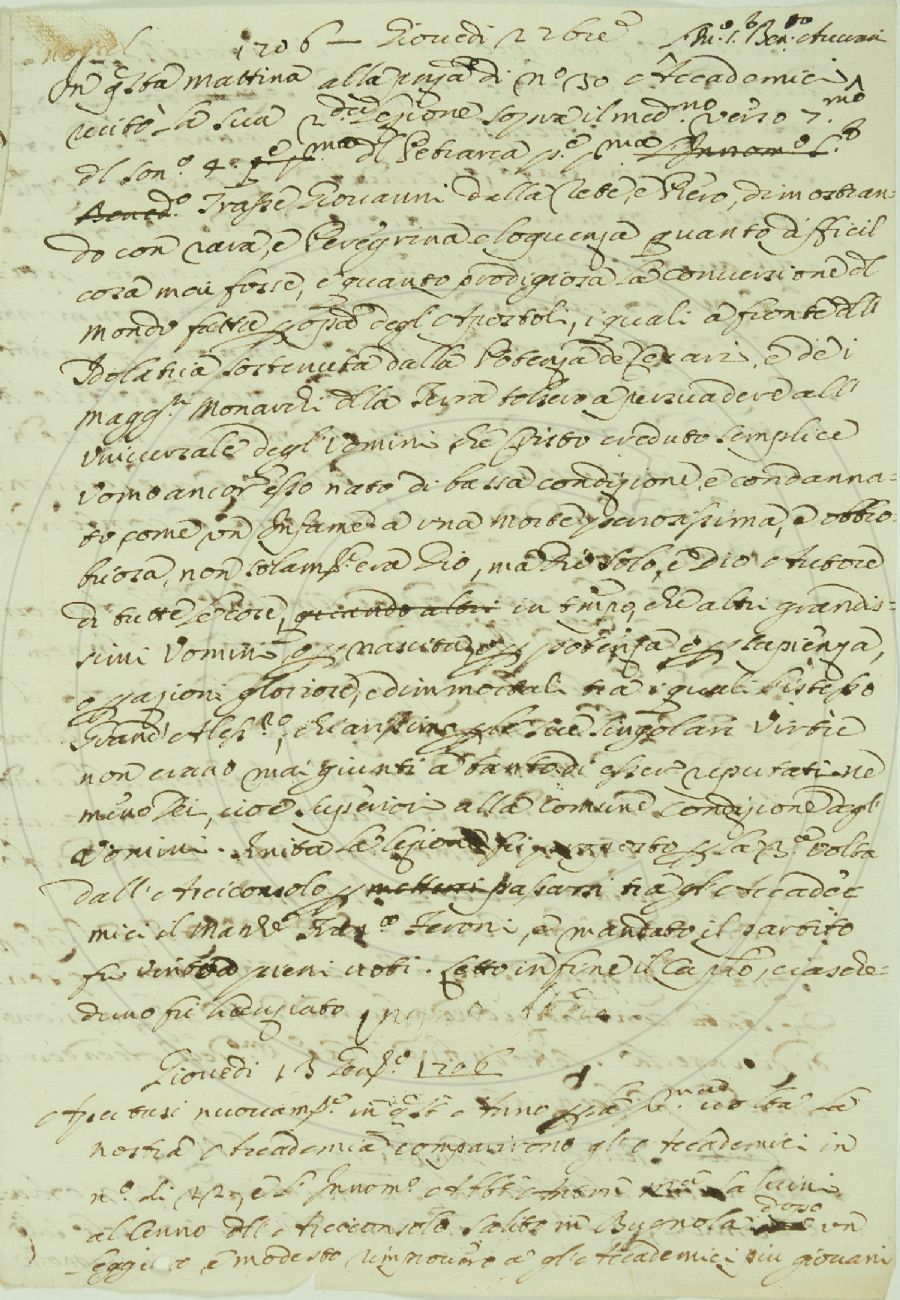 1706 – Giovedi 2 xbre
In q.sta mattina alla pnza di n.o 30 Accademici
recitò la sua 2.da Lezione sopra il med.mo verso 7.mo
del son.o 4.o del Petrarca
Bened.o Trasse Giovanni dalla rete, e Piero, dimostran=
do con rara, e Peregrina eloquenza quanto difficil
cosa mai fosse, e quanto prodigiosa la conversione del
mondo fatta p opra degl'Apostoli, i quali a fronte dell
Idolatria sostenuta dalla Potenza de Cesari, e de i
magg.ri Monarchi della Terra tolsero a persuadere all
universale degl'Uomini che Cristo creduto semplice
uomo ancor esso nato di bassa condizione, e condanna=
to come un Infame a una morte penosissima, e obbro=
briosa, non solam.te era Dio, ma Dio solo, e Dio Autore
di tutte le cose, quando altri in tempo, che altri grandis=
simi Uomini o p nascita, o p potenza, o p sapienza,
o p azioni gloriose, ed immortali tra i quali l'istesso
Grand'Aless.ro, chiarissimo p le sue singolari Virtù
non erano mai giunti a tanto di esser reputati ne
meno Dei, cioè superiori alla comune condizione degl'
Uomini. Finita la lezione fu proposto p la p.a volta
dall'Arciconsolo p mettersi passarsi tra gl'Accade=
mici il March.e Fran.co Feroni, e mandato il partito
fu vinto p pieni voti. Letto in fine il Cap.lo, ciasche=
duno fu licenziato
Giovedi 13 Genn.o 1706
Apertasi nuovam.te in q.sto Anno p la p.ma volta la
nostra Accademia comparirono gl'Accademici in
n.o di 22, e l'Innom.o Abb.e Anton M.a Salvini
al Cenno dell'Arciconsolo salito in Bugnola dopo un
leggiero e modesto rimprovero a gl'Accademici piu giovani